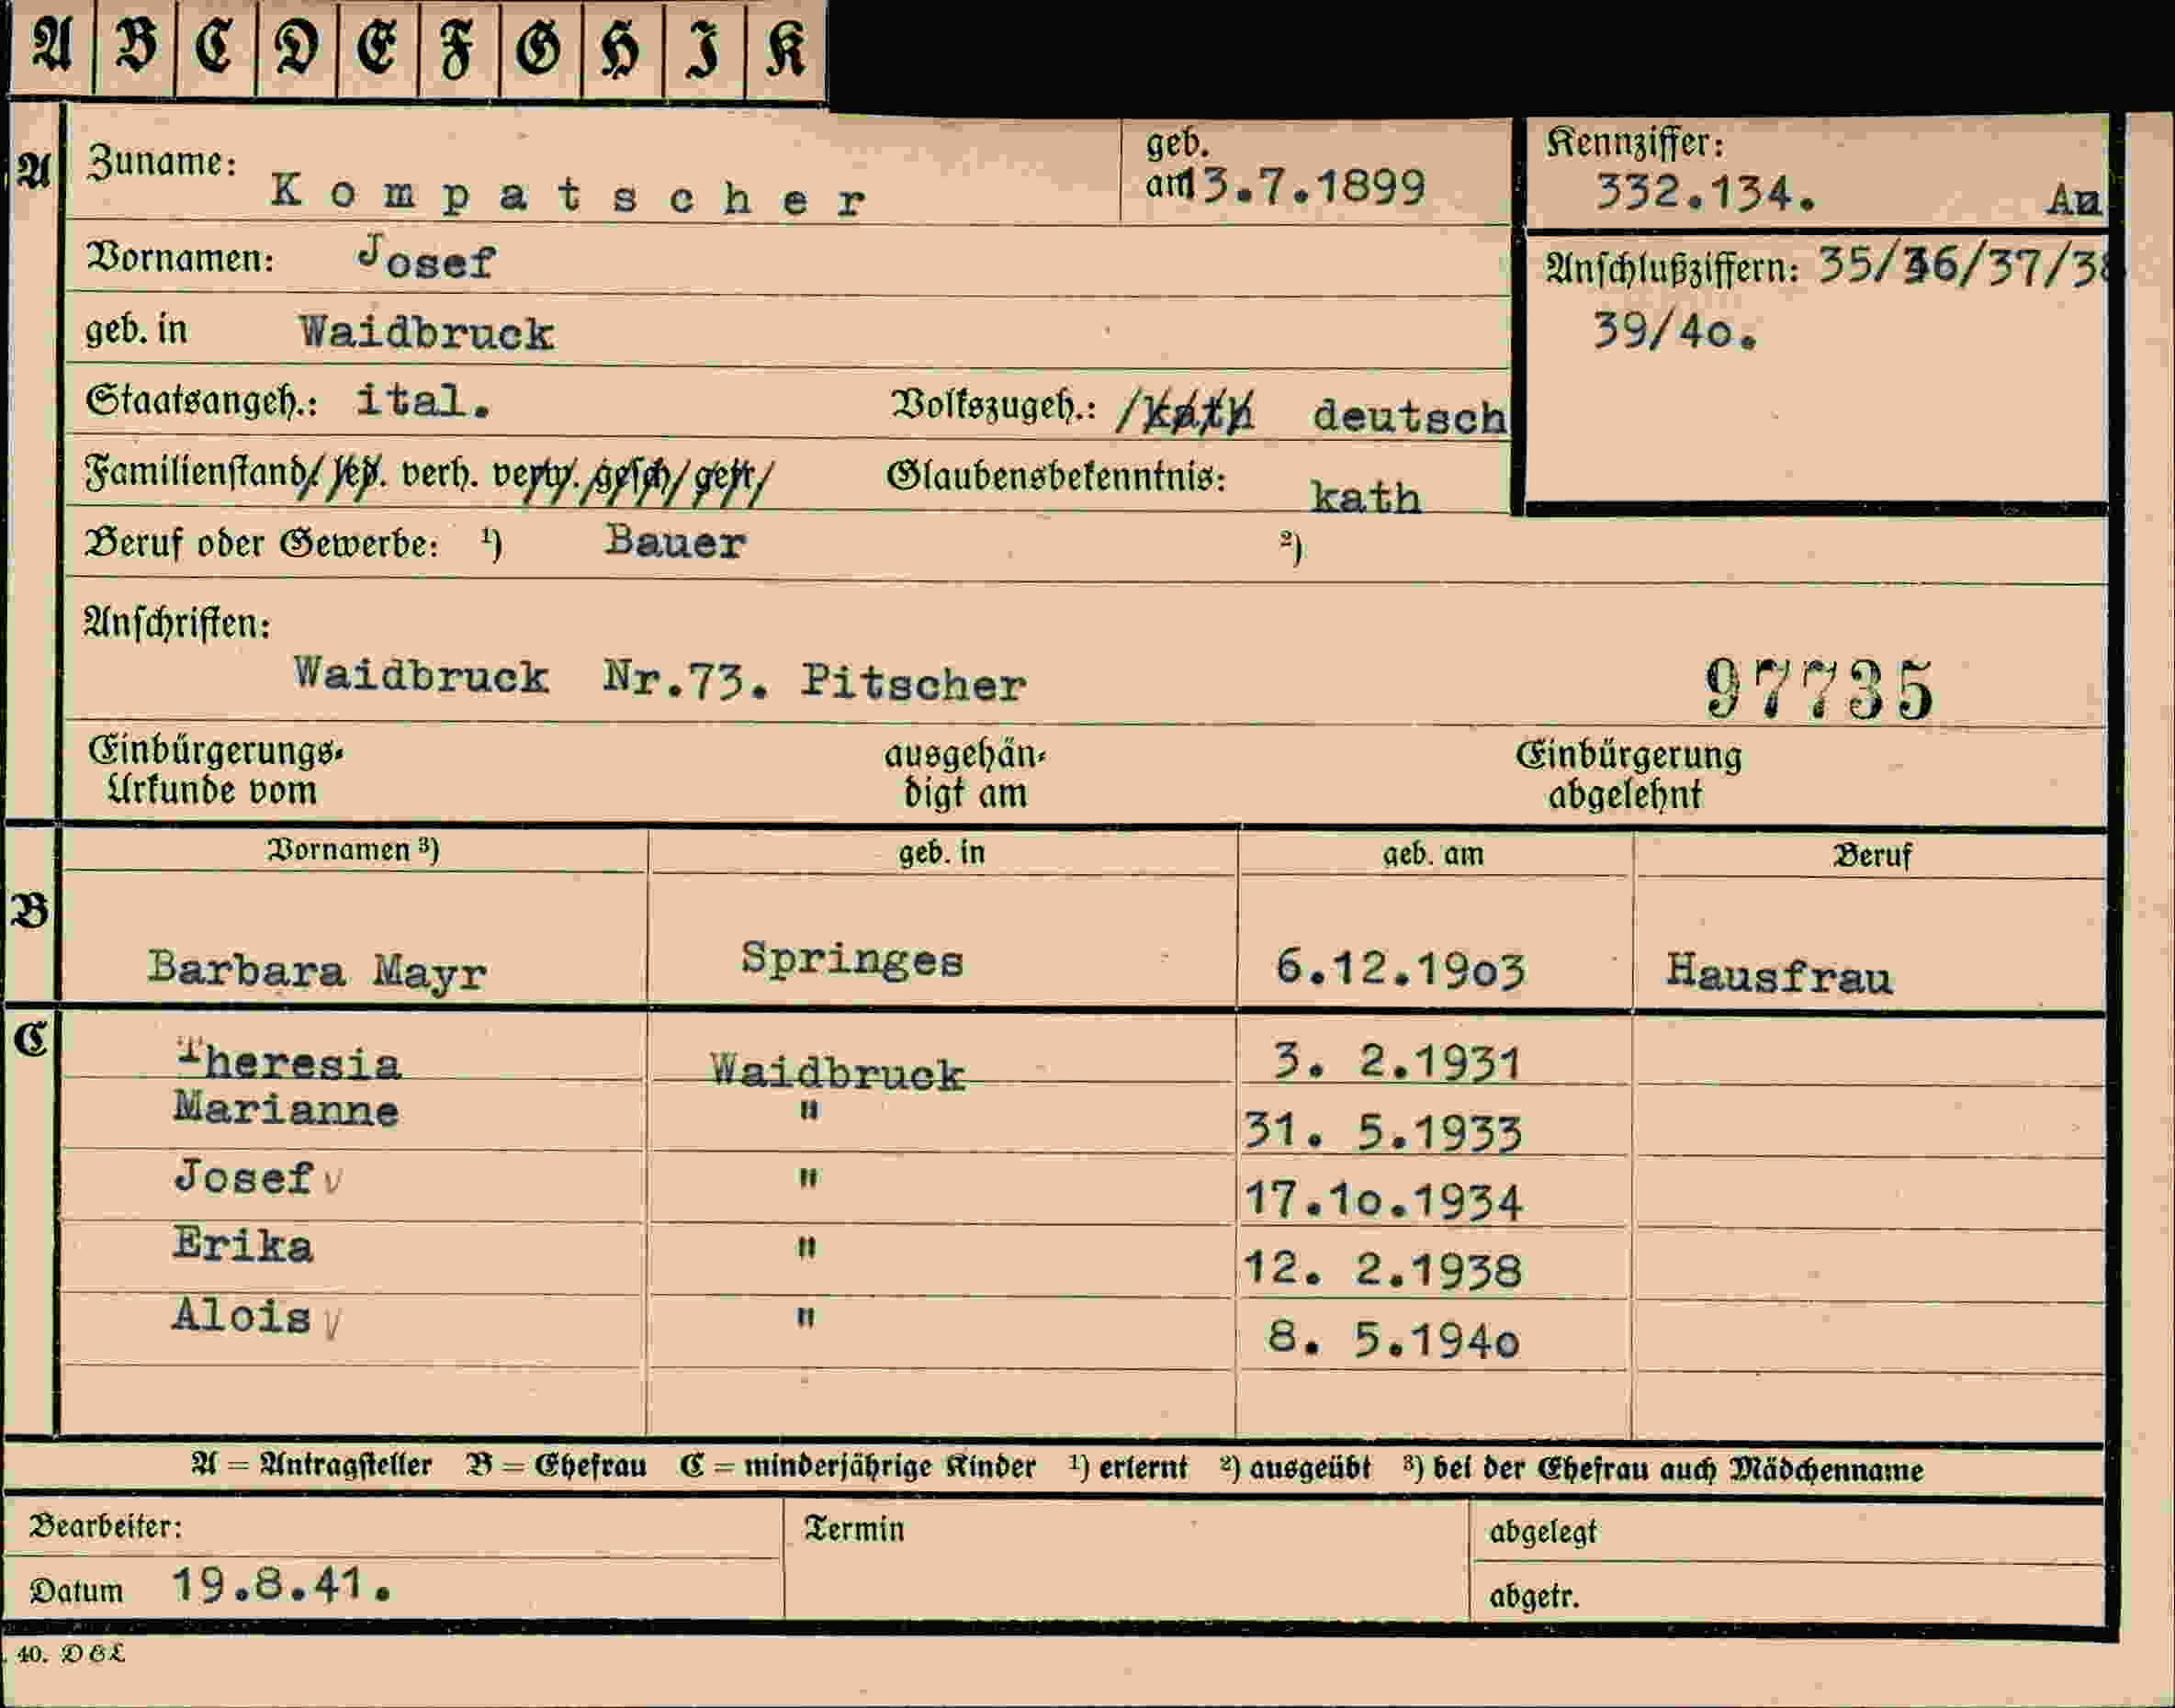 A B C D E F G H I K
A
Zuname: Kompatscher
geb. am 13.7.1899
Kennziffer: 332.134. An
Vornamen: Josef
Anschlußziffern: 35/36/37/38
39/40.
geb. in Waidbruck
Staatsangeh.: ital. Volkszugeh.: /kath deutsch
Familienstand/ led. verh. verw. gesch/ getr/ Glaubensbekenntnis: kath
Beruf oder Gewerbe: ¹) Bauer ²)
Anschriften:
Waidbruck Nr.73. Pitscher 97735
Einbürgerungs-Urkunde vom
ausgehändigt am
Einbürgerung abgelehnt
Vornamen ³) geb. in geb. am Beruf
B
Barbara Mayr Springes 6.12.1903 Hausfrau
C
Theresia Waidbruck 3. 2.1931
Marianne " 31. 5.1933
Josef v " 17.10.1934
Erika " 12. 2.1938
Alois v " 8. 5.1940
A = Antragsteller B = Ehefrau C = minderjährige Kinder ¹) erlernt ²) ausgeübt ³) bei der Ehefrau auch Mädchenname
Bearbeiter: Termin abgelegt
Datum 19.8.41. abgetr.
40. DGL